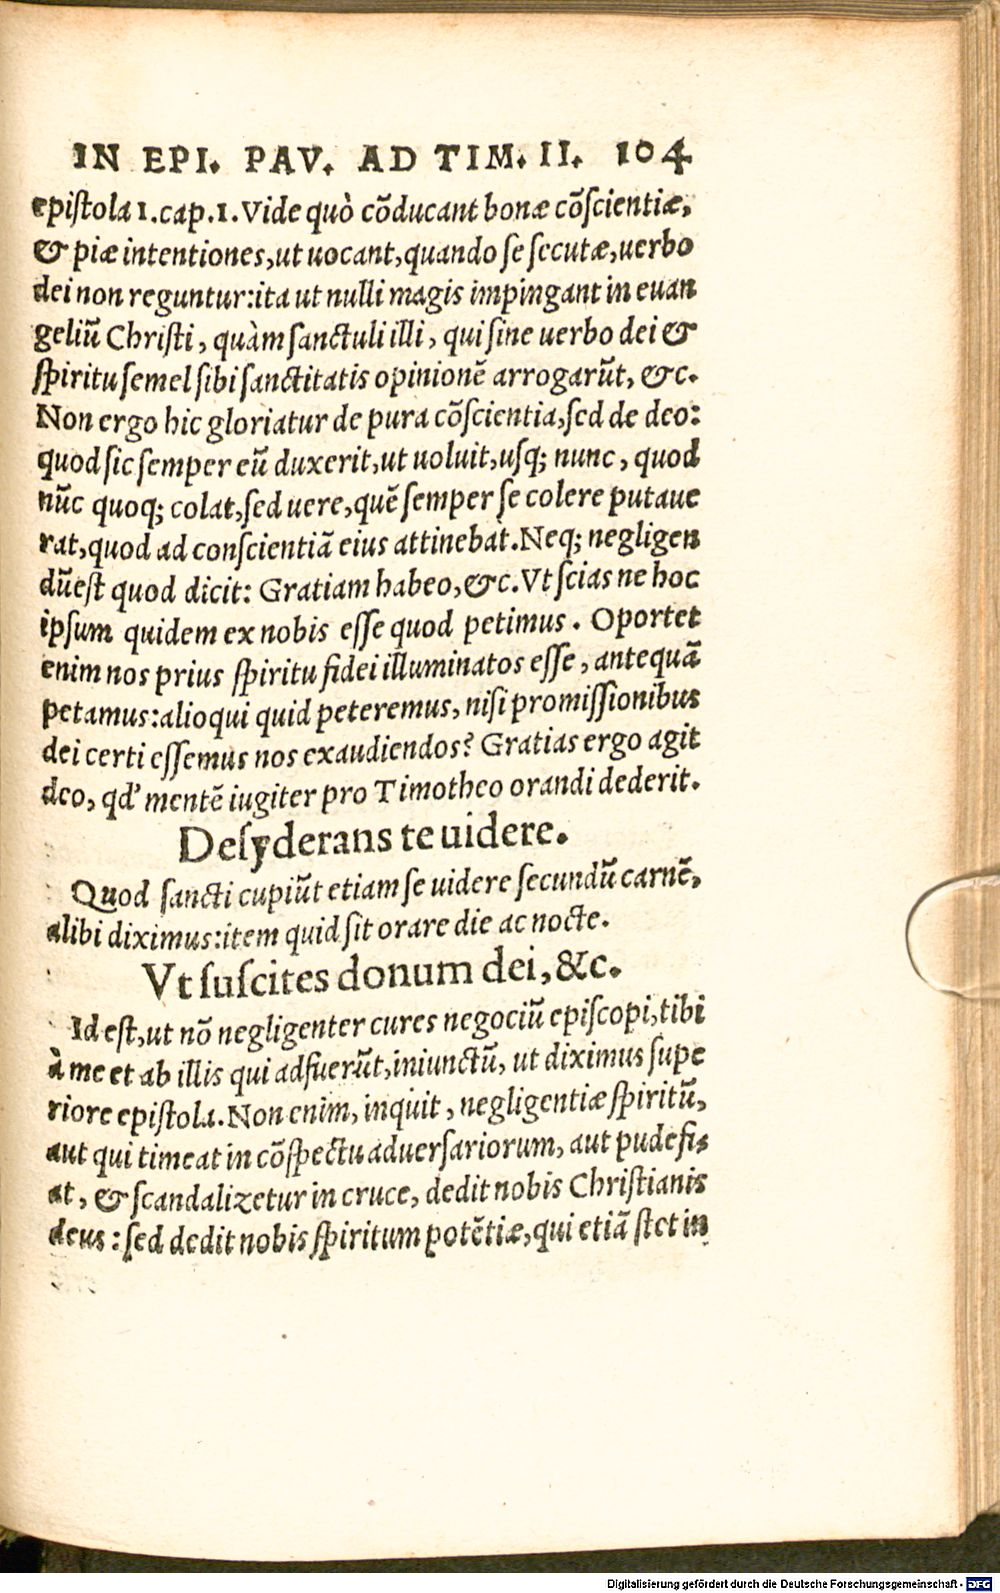 IN EPI. PAV. AD TIM. II. 104
epiſtola 1. cap. 1. Vide quò cõducant bonæ cõſcientiæ,
& piæ intentiones, ut uocant, quando ſe ſecutæ, uerbo
dei non reguntur: ita ut nulli magis impingant in euan
geliũ Chriſti, quàm ſanctuli illi, qui ſine uerbo dei &
ſpiritu ſemel ſibi ſanctitatis opinionẽ arrogarũt, &c.
Non ergo hic gloriatur de pura cõſcientia, ſed de deo:
quod ſic ſemper eũ duxerit, ut uoluit, uſq; nunc, quod
nũc quoq; colat, ſed uere, quẽ ſemper ſe colere putaue
rat, quod ad conſcientiã eius attinebat. Neq; negligen
dũ eſt quod dicit: Gratiam habeo, &c. Vt ſcias ne hoc
ipſum quidem ex nobis eſſe quod petimus. Oportet
enim nos prius ſpiritu fidei illuminatos eſſe, antequã
petamus: alioqui quid peteremus, niſi promiſſionibus
dei certi eſſemus nos exaudiendos? Gratias ergo agit
deo, qd' mentẽ iugiter pro Timotheo orandi dederit.
Deſyderans te uidere.
Quod ſancti cupiũt etiam ſe uidere ſecundũ carnẽ,
alibi diximus: item quid ſit orare die ac nocte.
Vt ſuſcites donum dei, &c.
Id eſt, ut nõ negligenter cures negociũ epiſcopi, tibi
à me et ab illis qui adfuerũt, iniunctũ, ut diximus ſupe
riore epiſtola. Non enim, inquit, negligentiæ ſpiritũ,
aut qui timeat in cõſpectu aduerſariorum, aut pudefi⸗
at, & ſcandalizetur in cruce, dedit nobis Chriſtianis
deus: ſed dedit nobis ſpiritum potẽtiæ, qui etiã ſtet in
Digitalisierung gefördert durch die Deutsche Forschungsgemeinschaft - DFG